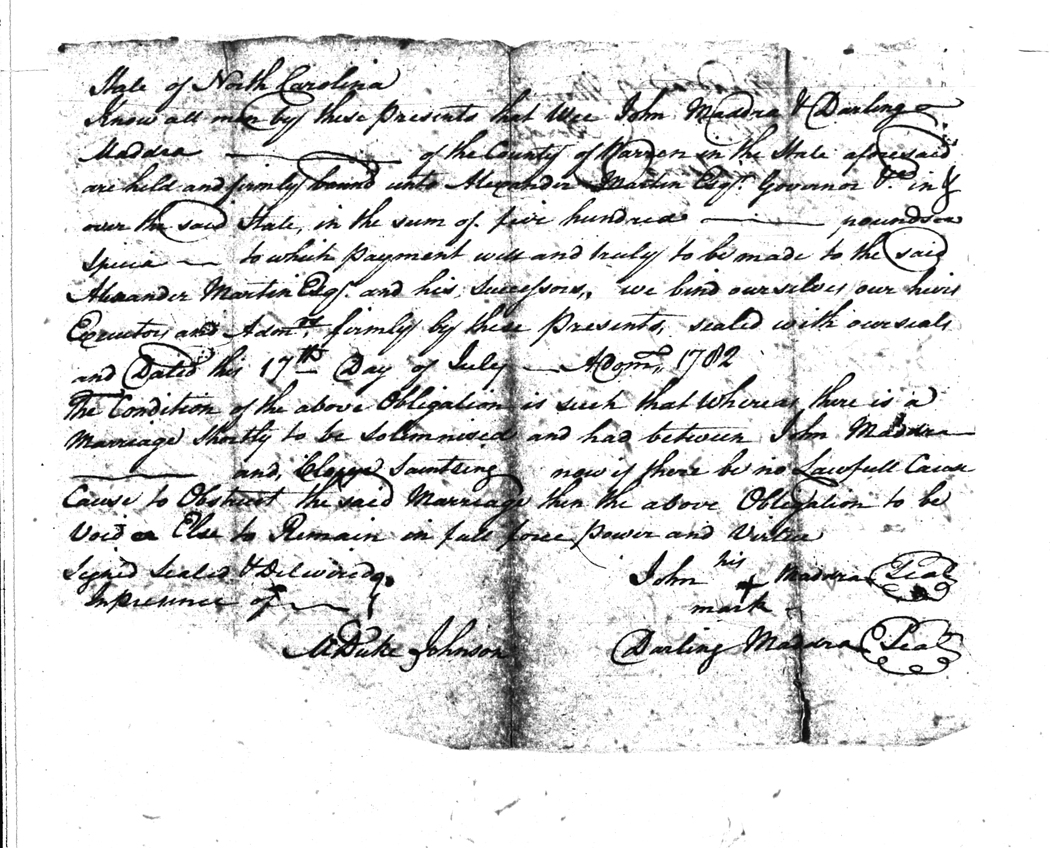 State of North Carolina
Know all men by these Presents that Wee John Maddra & Darling
Maddra of the County of Warren in the State aforesaid
are held and firmly bound unto Alexander Martin Esqr. Governor &c. in &
over the said State, in the sum of five hundred pounds
Specia to which payment well and truly to be made to the said
Alexander Martin Esqr. and his Successors, we bind ourselves our heirs
Executors and Admrs. firmly by these Presents, sealed with our seals
and Dated this 17th Day of July ADom, 1782
The Condition of the above Obligation is such that Whereas there is a
Marriage Shortly to be Solemnised and had between John Maddra
and, Saintsing now if there be no Lawfull Cause
Cause to Obstruct the said Marriage then the above Obligation to be
Void or Else to Remain in full force power and Virtue
Signed Sealed & Delivered
In presence of
John his + Maddra Seal
mark
MDuke Johnson Darling Maddra Seal